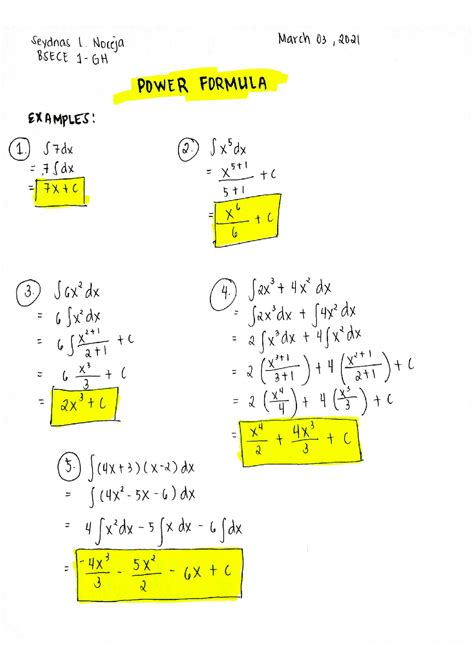 Seydnas I. Noceja
March 03, 2021
BSECE 1-GH
POWER FORMULA
EXAMPLES:
1. ∫7dx
= 7∫dx
= 7x + C
2. ∫x⁵dx
= x⁵⁺¹/5+1 + C
= x⁶/6 + C
3. ∫6x² dx
= 6∫x²dx
= 6∫x²⁺¹/2+1 + C
= 6 x³/3 + C
= 2x³ + C
4. ∫2x³ + 4x² dx
= ∫2x³dx + ∫4x²dx
= 2∫x³dx + 4∫x²dx
= 2(x³⁺¹/3+1) + 4(x²⁺¹/2+1) + C
= 2(x⁴/4) + 4(x³/3) + C
= x⁴/2 + 4x³/3 + C
5. ∫(4x+3)(x-2)dx
= ∫(4x² - 5x - 6)dx
= 4∫x²dx - 5∫x dx - 6∫dx
= -4x³/3 - 5x²/2 - 6x + C